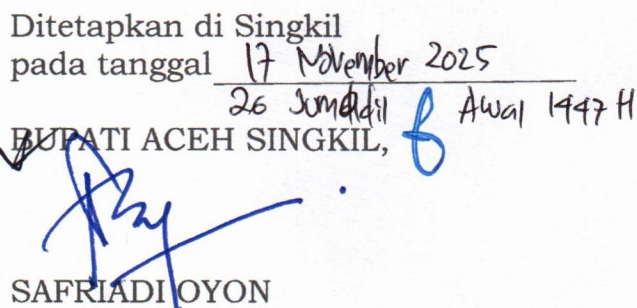 Ditetapkan di Singkil
pada tanggal 17 November 2025
26 Jumadil Awal 1447 H
BUPATI ACEH SINGKIL,
SAFRIADI OYON